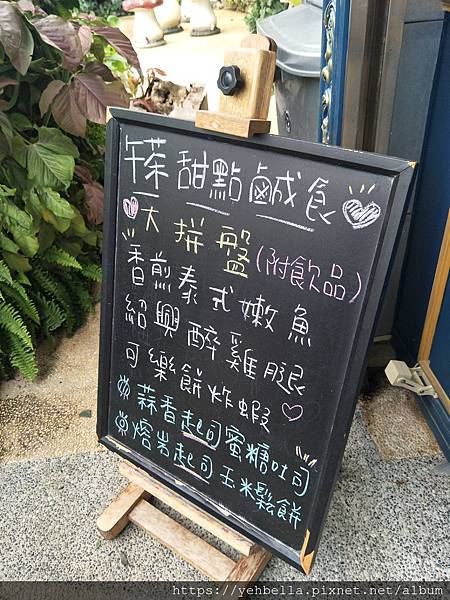 午茶 甜點 鹹食
大拼盤(附飲品)
香煎泰式嫩魚
紹興醉雞腿
可樂餅炸蝦
蒜香起司蜜糖吐司
熔岩起司玉米鬆餅
https://yehbella.pixnet.net/album